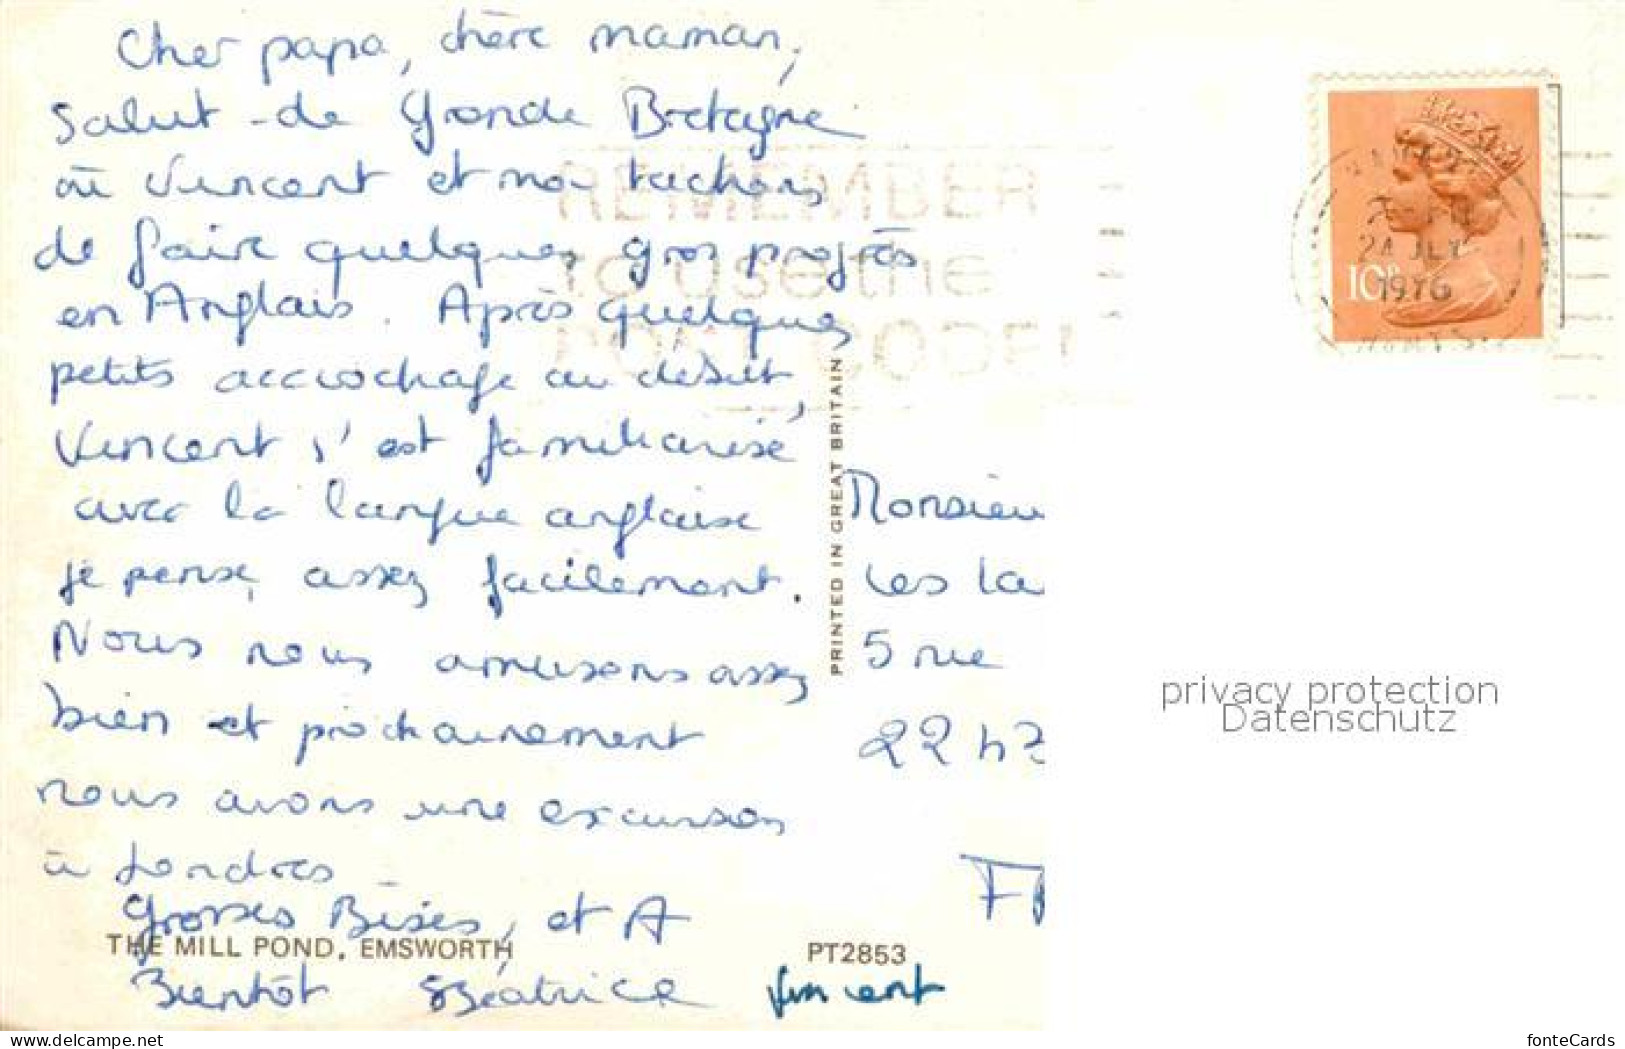 Cher papa, chère maman,
Salut de Grande Bretagne
où Vincent et moi tachons
de faire quelques gros progrès
en Anglais. Après quelques
petits accrochage au début,
Vincent s'est familiarisé
avec la langue anglaise
je pense, assez facilement.
Nous nous amusons assez
bien et prochainement
nous avons une excursion
à Londres
Grosses Bises, et A
Bientôt Béatrice Vincent
THE MILL POND, EMSWORTH
PT2853
PRINTED IN GREAT BRITAIN
REMEMBER
to use the
POST CODE
24 JLY
1976
HANTS.
10P
Monsieu
Les La
5 rue
22
privacy protection
Datenschutz
www.delcampe.net
fonteCards